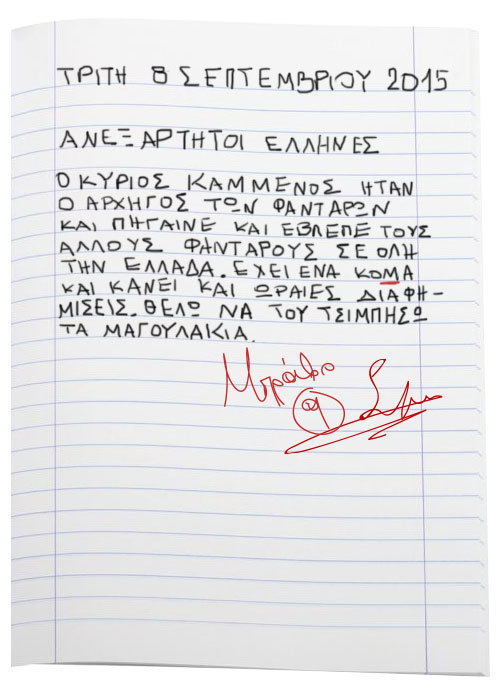 ΤΡΙΤΗ 8 ΣΕΠΤΕΜΒΡΙΟΥ 2015
ΑΝΕΞΑΡΤΗΤΟΙ ΕΛΛΗΝΕΣ
Ο ΚΥΡΙΟΣ ΚΑΜΜΕΝΟΣ ΗΤΑΝ
Ο ΑΡΧΗΓΟΣ ΤΩΝ ΦΑΝΤΑΡΩΝ
ΚΑΙ ΠΗΓΑΙΝΕ ΚΑΙ ΕΒΛΕΠΕ ΤΟΥΣ
ΑΛΛΟΥΣ ΦΑΝΤΑΡΟΥΣ ΣΕ ΟΛΗ
ΤΗΝ ΕΛΛΑΔΑ. ΕΧΕΙ ΕΝΑ ΚΟΜΑ
ΚΑΙ ΚΑΝΕΙ ΚΑΙ ΩΡΑΙΕΣ ΔΙΑΦΗ-
ΜΙΣΕΙΣ. ΘΕΛΩ ΝΑ ΤΟΥ ΤΣΙΜΠΗΣΩ
ΤΑ ΜΑΓΟΥΛΑΚΙΑ.
Μπράβο